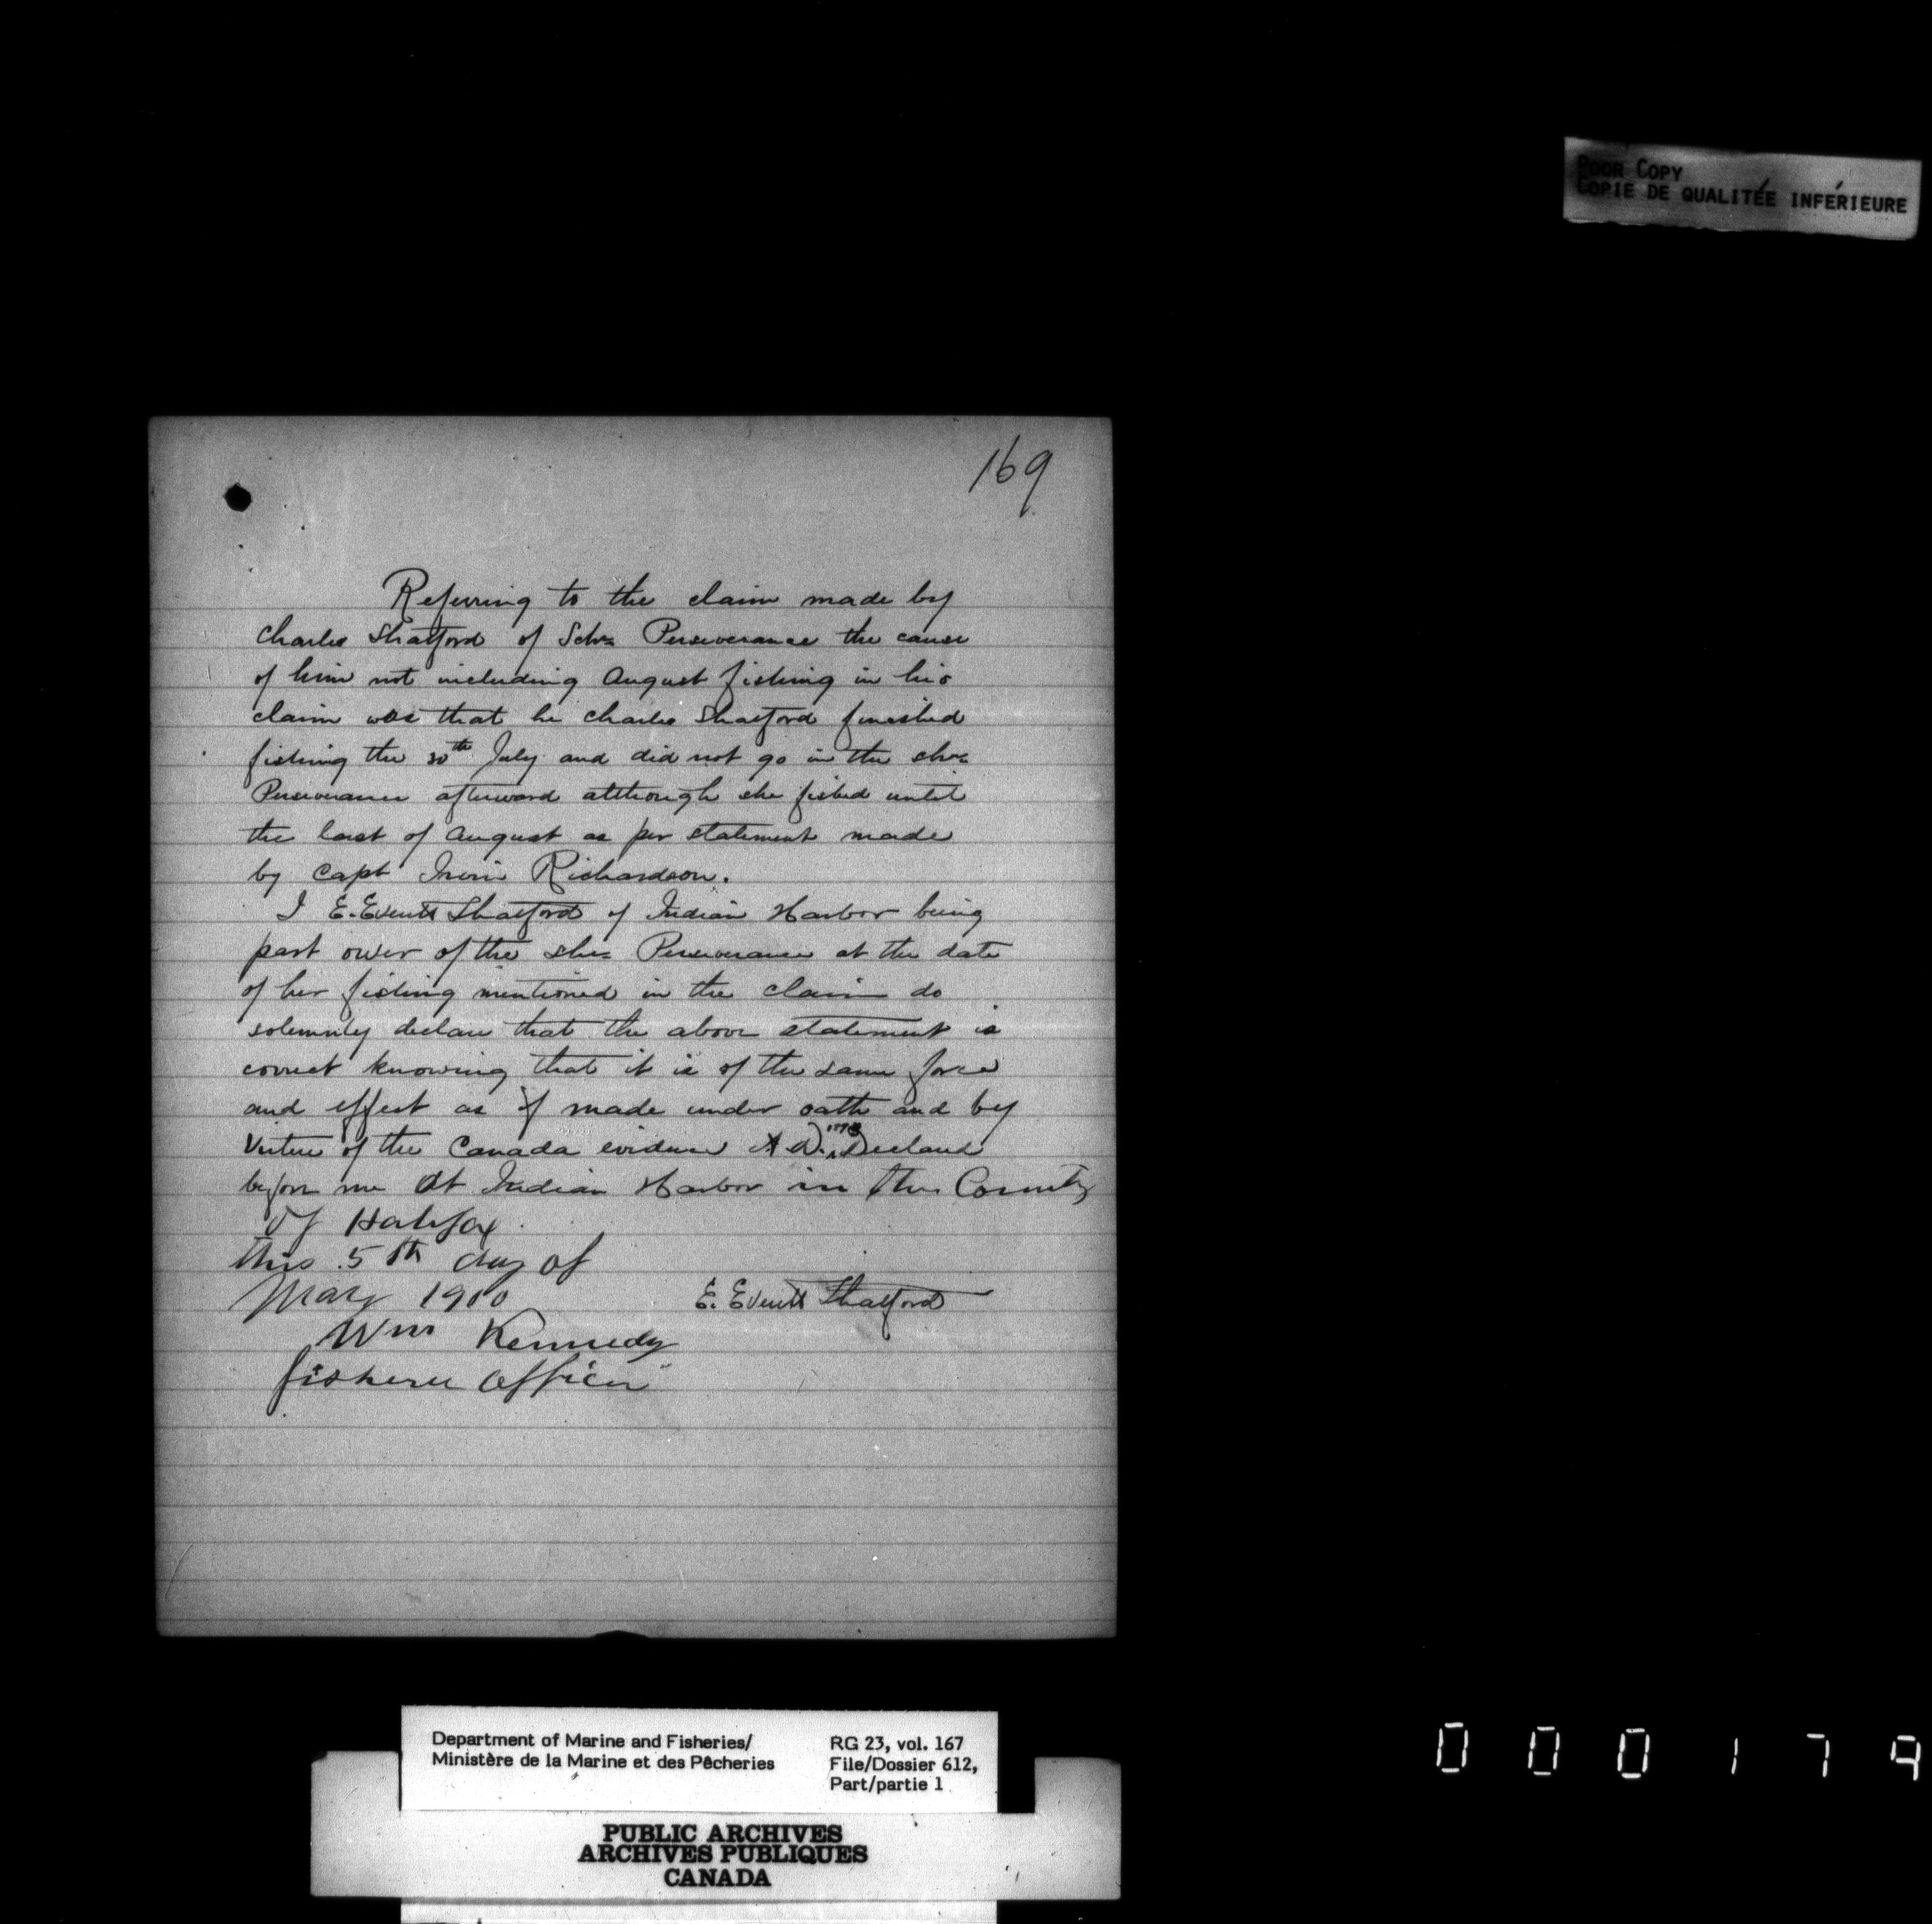 POOR COPY
COPIE DE QUALITÉE INFÉRIEURE
169
Referring to the claim made by
Charles Shatford of Schr Perseverance the cause
of him not including August fishing in his
claim was that he Charles Shatford finished
fishing the 30th July and did not go in the schr
Perseverance afterward although she fished until
the last of August as per statement made
by Capt Irvin Richardson.
I E. Everett Shatford of Indian Harbor being
part owner of the schr Perseverance at the date
of her fishing mentioned in the claim do
solemnly declare that the above statement is
correct knowing that it is of the same force
and effect as if made under oath and by
Virtue of the Canada evidence Declared
before me At Indian Harbor in the County
Of Halifax
this 5th day of
May 1900
E. Everett Shatford
Wm Kennedy
fishery Officer
Department of Marine and Fisheries/
Ministère de la Marine et des Pêcheries
RG 23, vol. 167
File/Dossier 612,
Part/partie 1
PUBLIC ARCHIVES
ARCHIVES PUBLIQUES
CANADA
000179